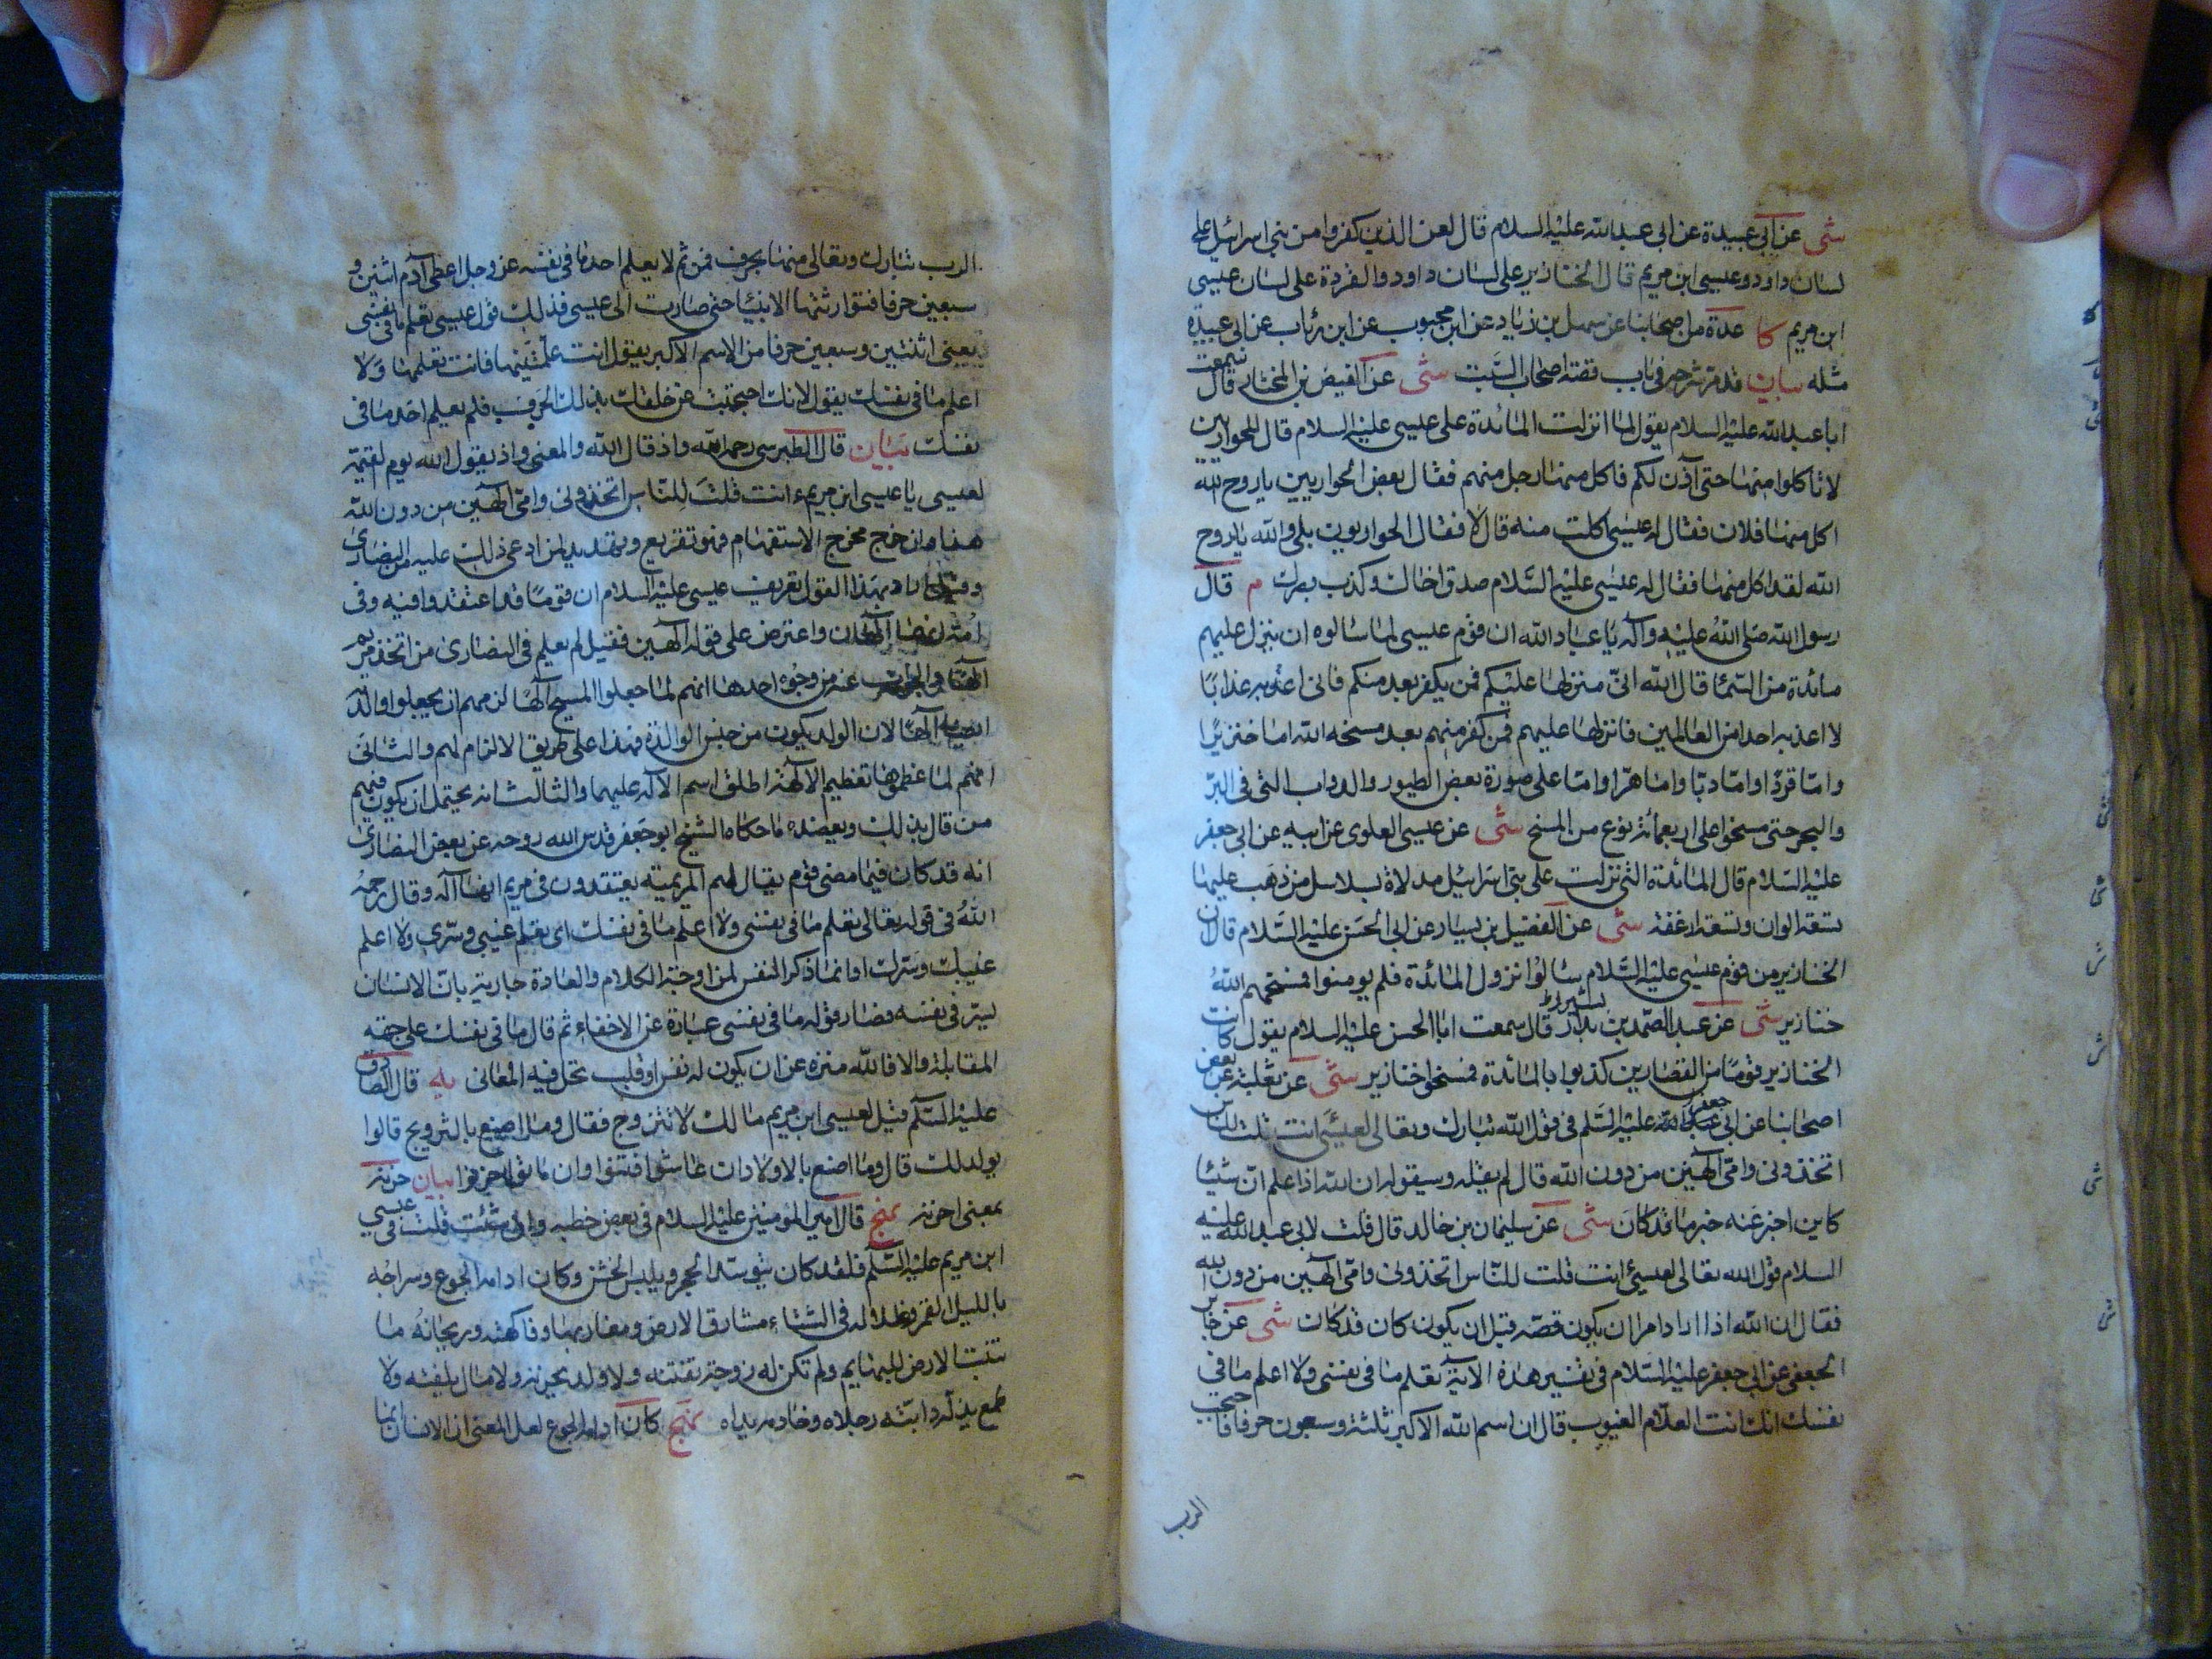 شى عن ابى عبيدة عن ابى عبد الله عليه السلام قال لعن الذين كفروا من بنى اسرائيل على
لسان داود وعيسى ابن مريم قال الخنازير على لسان داود والقردة على لسان عيسى
ابن مريم كا عدة من اصحابنا عن سهل بن زياد عن ابن محبوب عن ابن رئاب عن ابى عبيدة
مثله بيان قد مر شرحه فى باب قصة اصحاب السبت شى عن الفيض بن المختار قال سمعت
ابا عبد الله عليه السلام يقول لما انزلت المائدة على عيسى عليه السلام قال للحواريين
لا تاكلوا منها حتى آذن لكم فاكل منها رجل منهم فقال بعض الحواريين يا روح الله
اكل منها فلان فقال له عيسى اكلت منه قال لا فقال الحواريون بلى والله يا روح
الله لقد اكل منها فقال له عيسى عليه السلام صدق اخاك وكذب بصرك م قال
رسول الله صلى الله عليه وآله يا عباد الله ان قوم عيسى لما سالوه ان ينزل عليهم
مائدة من السماء قال الله انى منزلها عليكم فمن يكفر بعد منكم فانى اعذبه عذابا
لا اعذبه احدا من العالمين فانزلها عليهم فمن كفر منهم بعد مسخه الله اما خنزيرا
واما قردا واما دبا واما هرا واما على صورة بعض الطيور والدواب التى فى البر
والبحر حتى مسخوا على اربعمائة نوع من المسخ شى عن عيسى العلوى عن ابيه عن ابى جعفر
عليه السلام قال المائدة التى نزلت على بنى اسرائيل مدلاة بسلاسل من ذهب عليها
تسعة الوان وتسعة ارغفة شى عن الفضيل بن يسار عن ابى الحسن عليه السلام قال ان
الخنازير من قوم عيسى عليه السلام سالوا نزول المائدة فلم يومنوا فمسخهم الله
خنازير شى عن عبد الصمد بن بندار قال سمعت ابا الحسن عليه السلام يقول كانت
الخنازير قوما من القصارين كذبوا بالمائدة فمسخوا خنازير شى عن ثعلبة عن بعض
اصحابنا عن ابى جعفر عليه السلم فى قول الله تبارك وتعالى لعيسى ءانت قلت للناس
اتخذونى وامى الهين من دون الله قال لم يقله وسيقوله ان الله اذا علم ان شيئا
كاين اخبر عنه خبر ما قد كان شى عن سليمان بن خالد قال قلت لابى عبد الله عليه
السلام قول الله تعالى لعيسى ءانت قلت للناس اتخذونى وامى الهين من دون الله
فقال ان الله اذا اراد امرا ان يكون قصه قبل ان يكون كان قد كان شى عن جابر
الجعفى عن ابى جعفر عليه السلام فى تفسير هذه الاية تعلم ما فى نفسى ولا اعلم ما فى
نفسك انك انت العلام الغيوب قال ان اسم الله الاكبر ثلثة وسبعون حرفا فاحتجب
الرب
الرب تبارك وتعالى منها بحرف فمن ثم لا يعلم احد ما فى نفسه عز وجل اعطى آدم اثنين و
سبعين حرفا فتوارثتها الانبياء حتى صارت الى عيسى فذلك قول عيسى تعلم ما فى نفسى
يعنى اثنتين وسبعين حرفا من الاسم الاكبر يقول انت علمتنيها فانت تعلمها ولا
اعلم ما فى نفسك يقول لانك احتجبت عن خلقك بذلك الحرف فلم يعلم احد ما فى
نفسك تبيان قال الطبرسى رحمه الله واذ قال الله والمعنى واذ يقول الله يوم القيمة
لعيسى يا عيسى ابن مريم ءانت قلت للناس اتخذونى وامى الهين من دون الله
هذا وان خرج مخرج الاستفهام فهو تقريع وتهديد لمن ادعى ذلك عليه من النصارى
وقيل اراد بهذا القول تعريف عيسى عليه السلام ان قوما قد اعتقدوا فيه وفى
امه انهما الهان واعترض على قوله الهين فقيل لم يعلم فى النصارى من اتخذ مريم
الها والجواب عنه من وجوه احدها انهم لما جعلوا المسيح الها لزمهم ان يجعلوا والدته
ايضا الها لان الولد يكون من جنس الوالدة فهذا على طريق الالزام لهم والثانى
انهم لما عظموهما تعظيم الالهة اطلق اسم الآله عليهما والثالث انه يحتمل ان يكون فيهم
من قال بذلك ويعضده ما حكاه الشيخ ابو جعفر قدس الله روحه عن بعض النصارى
انه قد كان فيما مضى قوم يقال لهم المريمية يعتقدون فى مريم انها آله وقال رحمه
الله فى قوله تعالى تعلم ما فى نفسى ولا اعلم ما فى نفسك اى تعلم غيبى وسرى ولا اعلم
غيبك وسرك وانما ذكر النفس لمزاوجة الكلام والعادة جارية بان الانسان
يسر فى نفسه فصار قوله ما فى نفسى عبارة عن الاخفاء ثم قال ما فى نفسك على جهة
المقابلة والا فالله منزه عن ان يكون له نفس او قلب تحل فيه المعانى يه قال الصادق
عليه السلم قيل لعيسى ابن مريم ما لك لا تتزوج فقال وما اصنع بالتزويج قالوا
يولد لك قال وما اصنع بالاولاد ان عاشوا فتنوا وان ماتوا احزنوا بيان حزنه
بمعنى احزنه نهج قال امير المومنين عليه السلام فى بعض خطبه وان شئت قلت فى عيسى
ابن مريم عليه السلم فلقد كان يتوسد الحجر ويلبس الخشن وكان ادامه الجوع وسراجه
بالليل القمر وظلاله فى الشتاء مشارق الارض ومغاربها وفاكهته وريحانه ما
تنبت الارض للبهايم ولم تكن له زوجة تفتنه ولا ولد يحزنه ولا مال يلفته ولا
طمع يذله دابته رجلاه وخادمه يداه نهج كان ادامه الجوع لعل المعنى ان الانسان انما